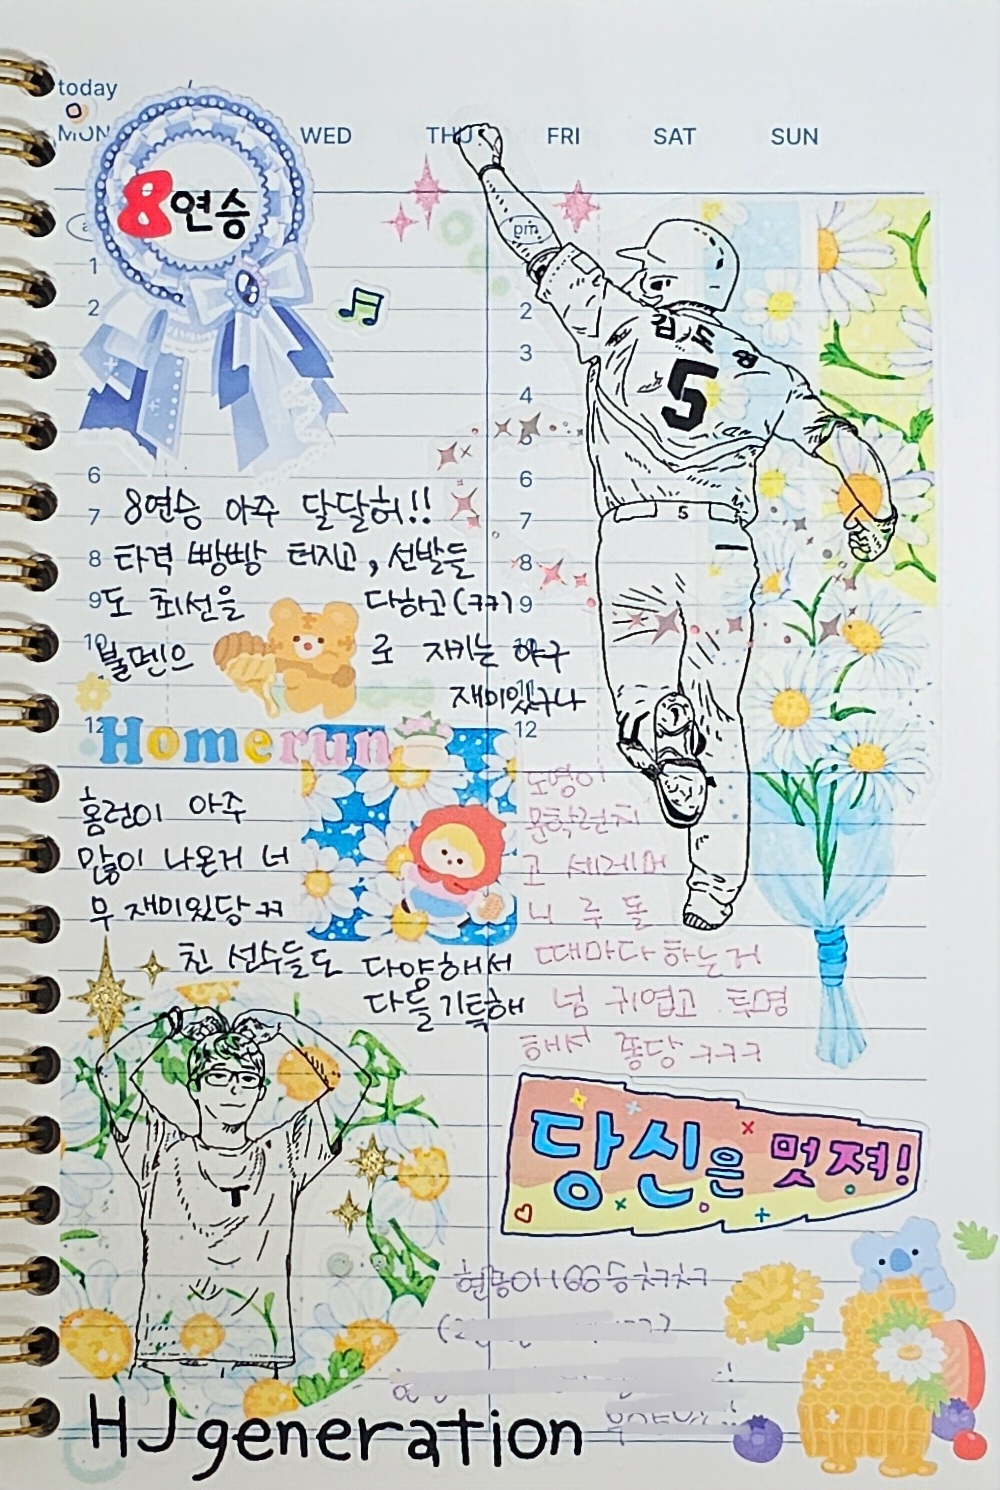 today
MON WED THU FRI SAT SUN
8연승
pm
김도영
5
5
1
2
2
3
4
5
6
6
7
7
8
8
9
9
10
10
12
12
8연승 아주 달달허!!
타격 빵빵 터지고, 선발들
도 최선을 다하고(ㅋㅋ)
불펜으로 지키는 야구
재미있구나
Homerun
홈런이 아주
많이 나온거 너
무 재미있당 ㅋㅋ
친 선수들도 다양해서
다들 기특해
도영이
문학런치
고 세레머
니 루 돌
때마다 하는거
넘 귀엽고 투명
해서 퐁당 ㅋㅋㅋ
당신은 멋져!
166승 ㅊㅋㅊㅋ
HJ generation